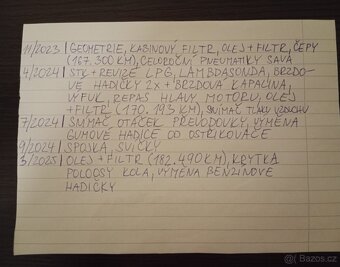 11/2023 | GEOMETRIE, KABINOVÝ FILTR, OLEJ + FILTR, ČEPY
(167.300 KM), CELOROČNÍ PNEUMATIKY SAVA
4/2024 | STK + REVIZE LPG, LAMBDASONDA, BRZDO-
VÉ HADIČKY 2X + BRZDOVÁ KAPALINA,
VÝFUK, REPAS HLAVY MOTORU, OLEJ
+ FILTR (170.193 KM), SNÍMAČ TLAKU VZDUCHU
7/2024 | SNÍMAČ OTÁČEK PŘEVODOVKY, VÝMĚNA
GUMOVÉ HADICE OD OSTŘIKOVAČE
9/2024 | SPOJKA, SVÍČKY
3/2025 | OLEJ + FILTR (182.490 KM), KRYTKA
POLOOSY KOLA, VÝMĚNA BENZINOVÉ
HADIČKY
Bazos.cz